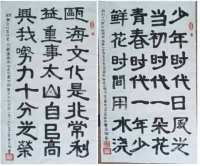 少年时代日风光
当初时代一朵花
青春时代一年少
鲜花时间用水浇
甌海文化是非常利
益重事太山自己高
興我努力十分光荣